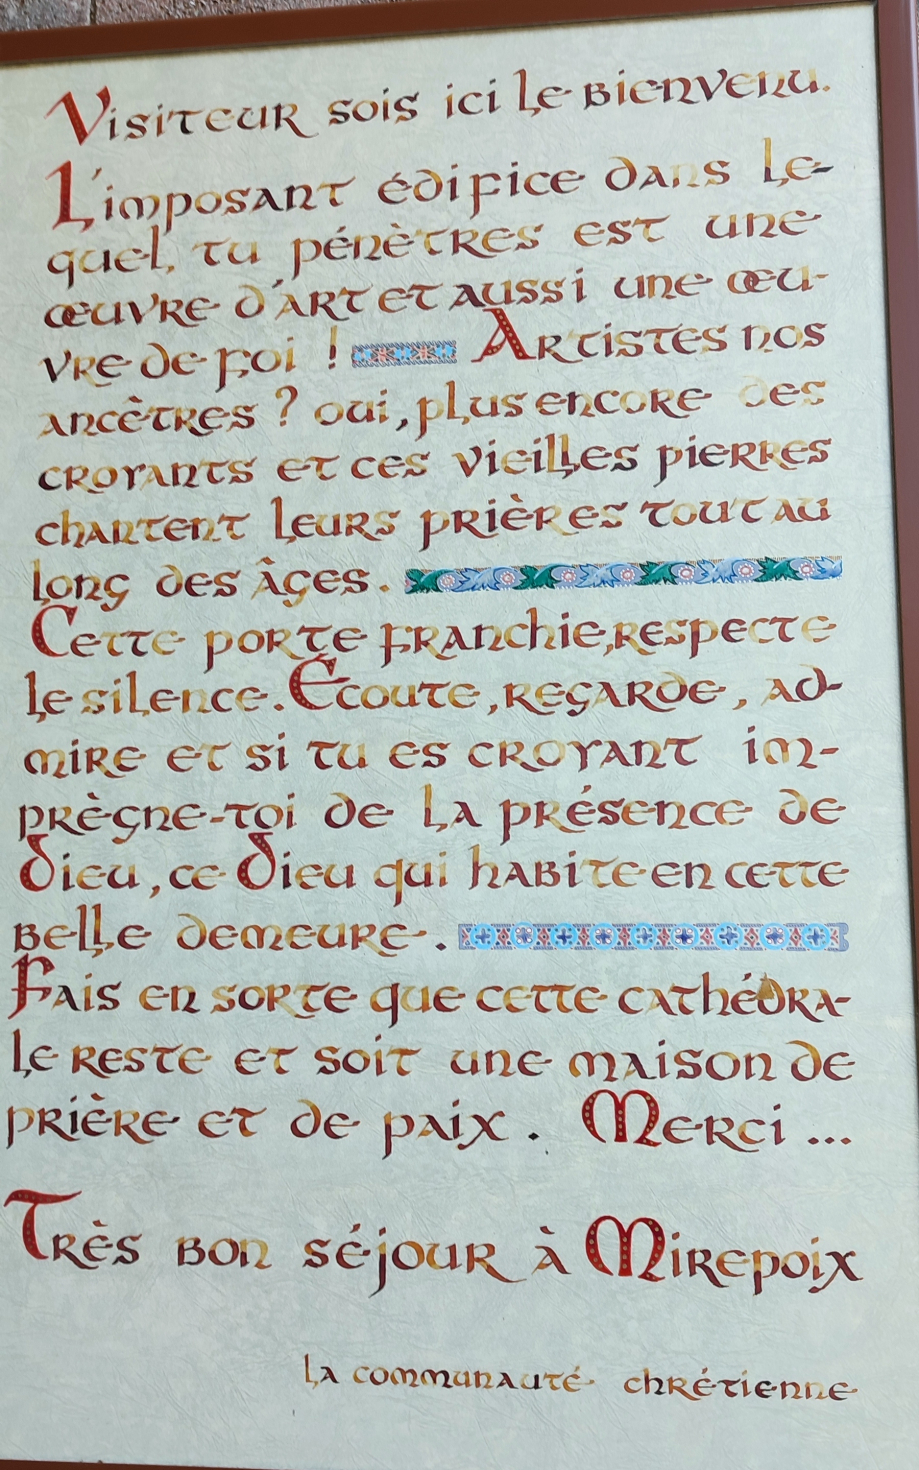 Visiteur sois ici le bienvenu.
L'imposant édifice dans le-
quel, tu pénètres est une
œuvre d'art et aussi une œu-
vre de foi ! Artistes nos
ancêtres ? oui, plus encore des
croyants et ces vieilles pierres
chantent leurs prières tout au
long des âges.
Cette porte franchie, respecte
le silence. Ecoute, regarde, ad-
mire et si tu es croyant im-
prègne-toi de la présence de
Dieu, ce Dieu qui habite en cette
belle demeure.
Fais en sorte que cette cathédra-
le reste et soit une maison de
prière et de paix. Merci ...
Très bon séjour à Mirepoix
La communauté chrétienne